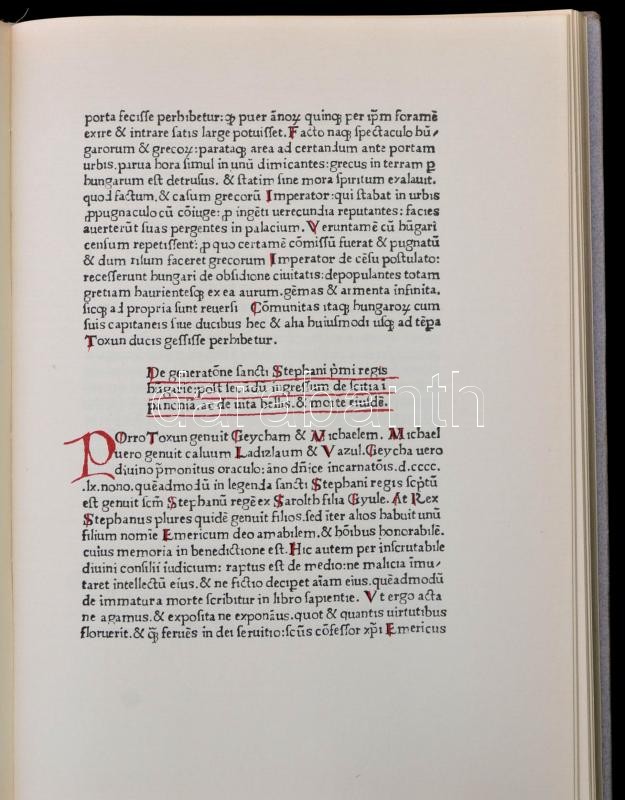 porta fecisse perhibetur: ꝙ puer ãnoꝝ quinqꝫ per ip̃m foramẽ
exire & intrare satis large potuisset. Facto naqꝫ spectaculo hũ/
garorum & grecoꝝ: parataqꝫ area ad certandum ante portam
urbis. parua hora simul in unũ dimicantes: grecus in terram ꝑ
hungarum est detrusus. & statim sine mora spiritum exalauit.
quod factum. & casum grecorũ Imperator: qui stabat in urbis
ꝓpugnaculo cũ cõiuge: ꝓ ingẽti uerecundia reputantes: facies
auerterũt suas pergentes in palacium. Veruntamẽ cũ hũgari
censum repetissent: ꝓ quo certamẽ cõmissũ fuerat & pugnatũ
& dum risum faceret grecorum Imperator de cẽsu postulato:
recesserunt hungari de obsidione ciuitatis: depopulantes totam
gretiam haurientesqꝫ ex ea aurum. gẽmas & armenta infinita.
sicqꝫ ad propria sunt reuersi Cõmunitas itaqꝫ hungaroꝝ cum
suis capitaneis siue ducibus hec & alia huiusmodi usqꝫ ad tẽpa
Toxun ducis gessisse perhibetur.
De generatõne sancti Stephani p̃mi regis
hũgarie: post secũdũ ingressum de scitia ĩ
panonia. ac de uita bellis. & morte eiusdẽ.
POrro Toxun genuit Geycham & Michaelem. Michael
uero genuit caluum Ladizlaum & Vazul. Geycha uero
diuino p̃monitus oraculo: ãno dñice incarnatõis. d.cccc.
.lx.nono. quẽadmodũ in legenda sancti Stephani regis scp̃tũ
est genuit scm̃ Stephanũ regẽ ex Sarolth filia Gyule. At Rex
Stephanus plures quidẽ genuit filios. sed ĩter alios habuit unũ
filium nomĩe Emericum deo amabilem. & hõibus honorabilẽ.
cuius memoria in benedictione est. Hic autem per inscrutabile
diuini consilii iudicium: raptus est de medio: ne malicia ĩmu/
taret intellectũ eius. & ne fictio deciperet aĩam eius. quẽadmodũ
de immatura morte scribitur in libro sapientie. Vt ergo acta
ne agamus. & exposita ne exponãus. quot & quantis uirtutibus
floruerit. & ꝙ̃ feruẽs in dei seruitio: scũs cõfessor xp̃i Emericus
darabanth